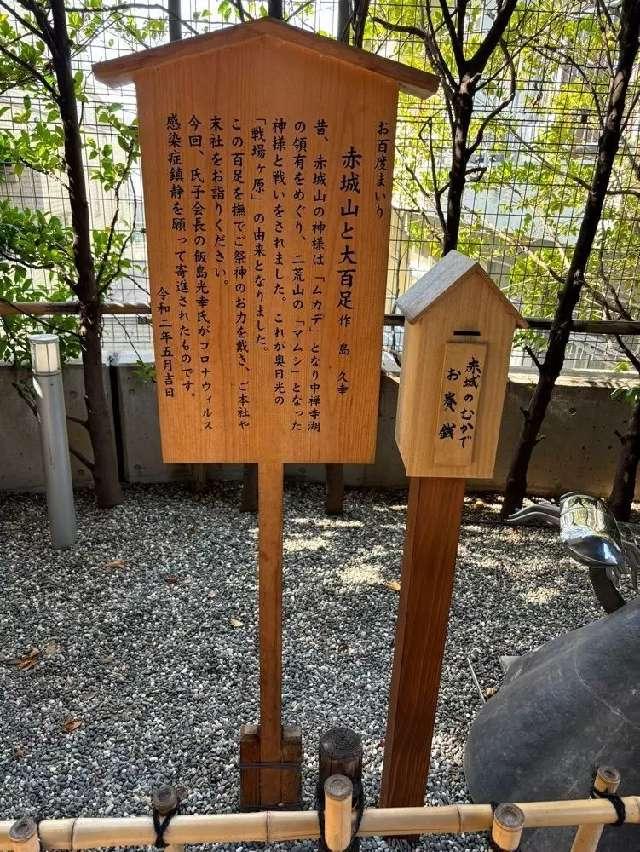 お百度まいり
赤城山と大百足 作 島 久幸
昔、赤城山の神様は「ムカデ」となり中禅寺湖
の領有をめぐり、二荒山の「アムシ」となった
神様と戦いをされました。これが奥日光の
「戦場ヶ原」の由来となりました。
この百足を撫でご祭神のお力を戴き、ご本社や
末社をお詣りください。
今回、氏子会長の飯島光幸氏がコロナウィルス
感染症鎮静を願って寄進されたものです。
令和二年五月吉日
赤城のむかで
お賽銭